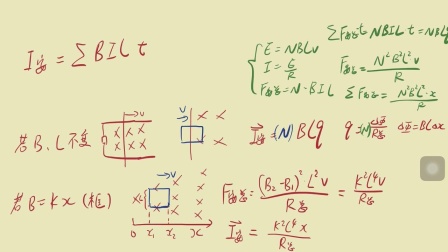 I安 = ΣBIL t
E = NBLv
I = E/R
F安 = N·BIL
ΣF安t = NBIL t = NBLq
F安 = N²B²L²v/R
ΣF安 = N²B²L²·x/R
若B、L不变
v
I安 = (N) BLq
q = (N) ΔΦ/R总
ΔΦ = BLΔx
若B=Kx (框)
v
0 x₁ x₂ x
F安 = (B₂-B₁)²L²v/R总 = K²L⁴v/R总
I安 = K²L⁴x/R总